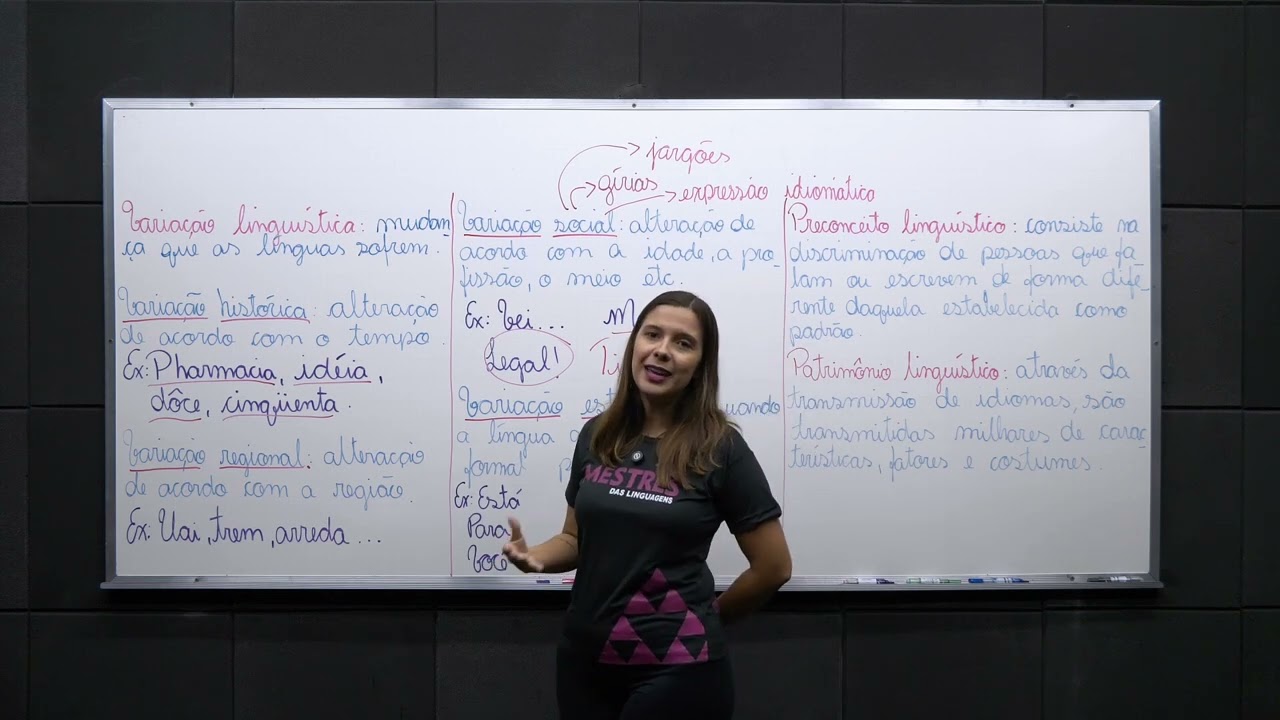 Variação linguística: mudan
ça que as línguas sofrem.
Variação histórica: alteração
de acordo com o tempo.
Ex: Pharmacia, idéia,
dôce, cinqüenta.
Variação regional: alteração
de acordo com a região.
Ex: Uai, trem, arreda...
jargões
gírias
expressão idiomatica
Variação social: alteração de
acordo com a idade, a pro_
fissão, o meio etc.
Ex: Vei...
Legal!
Variação
a língua
formal
Ex: Está
Para
Você
Preconceito linguístico: consiste na
discriminação de pessoas que fa_
lam ou escrevem de forma dife_
rente daquela estabelecida como
padrão.
Patrimônio linguístico: através da
transmissão de idiomas, são
transmitidas milhares de carac_
terísticas, fatores e costumes.
MESTRES
DAS LINGUAGENS